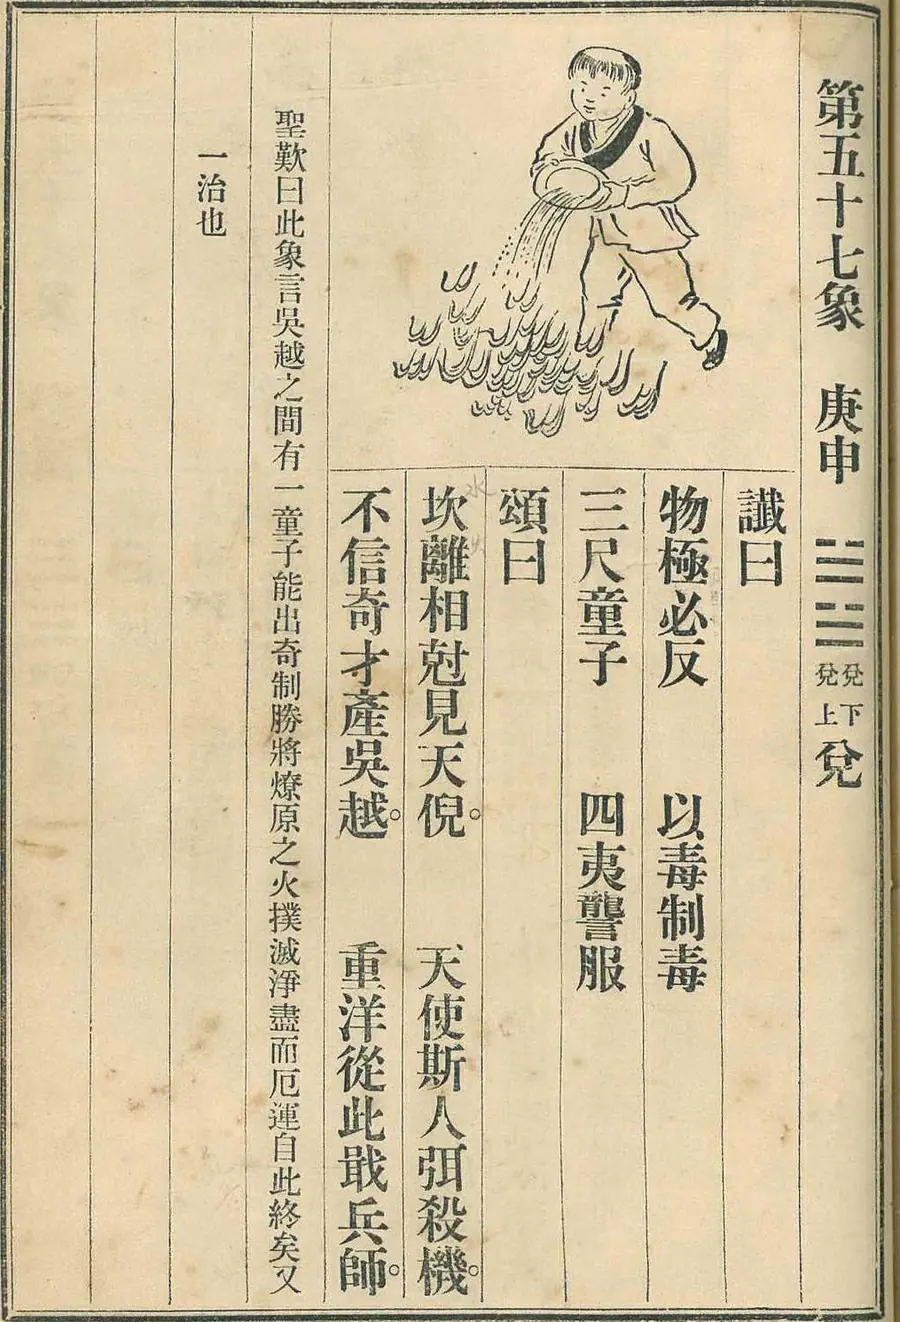 第五十七象 庚申 兌下兌上 兌
讖曰
物極必反 以毒制毒
三尺童子 四夷讋服
頌曰
坎離相尅見天倪。 天使斯人弭殺機。
不信奇才產吳越。 重洋從此戢兵師。
聖歎曰此象言吳越之間有一童子能出奇制勝將燎原之火撲滅淨盡而厄運自此終矣又
一治也